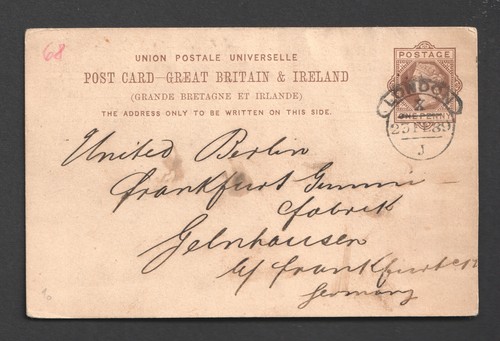 68
UNION POSTALE UNIVERSELLE
POST CARD—GREAT BRITAIN & IRELAND
(GRANDE BRETAGNE ET IRLANDE)
THE ADDRESS ONLY TO BE WRITTEN ON THIS SIDE.
POSTAGE
ONE PENNY
LONDON
X
89
J
United Berlin
Frankfurt Gummi-
fabrik
Gelnhausen
b/ Frankfurt
Germany